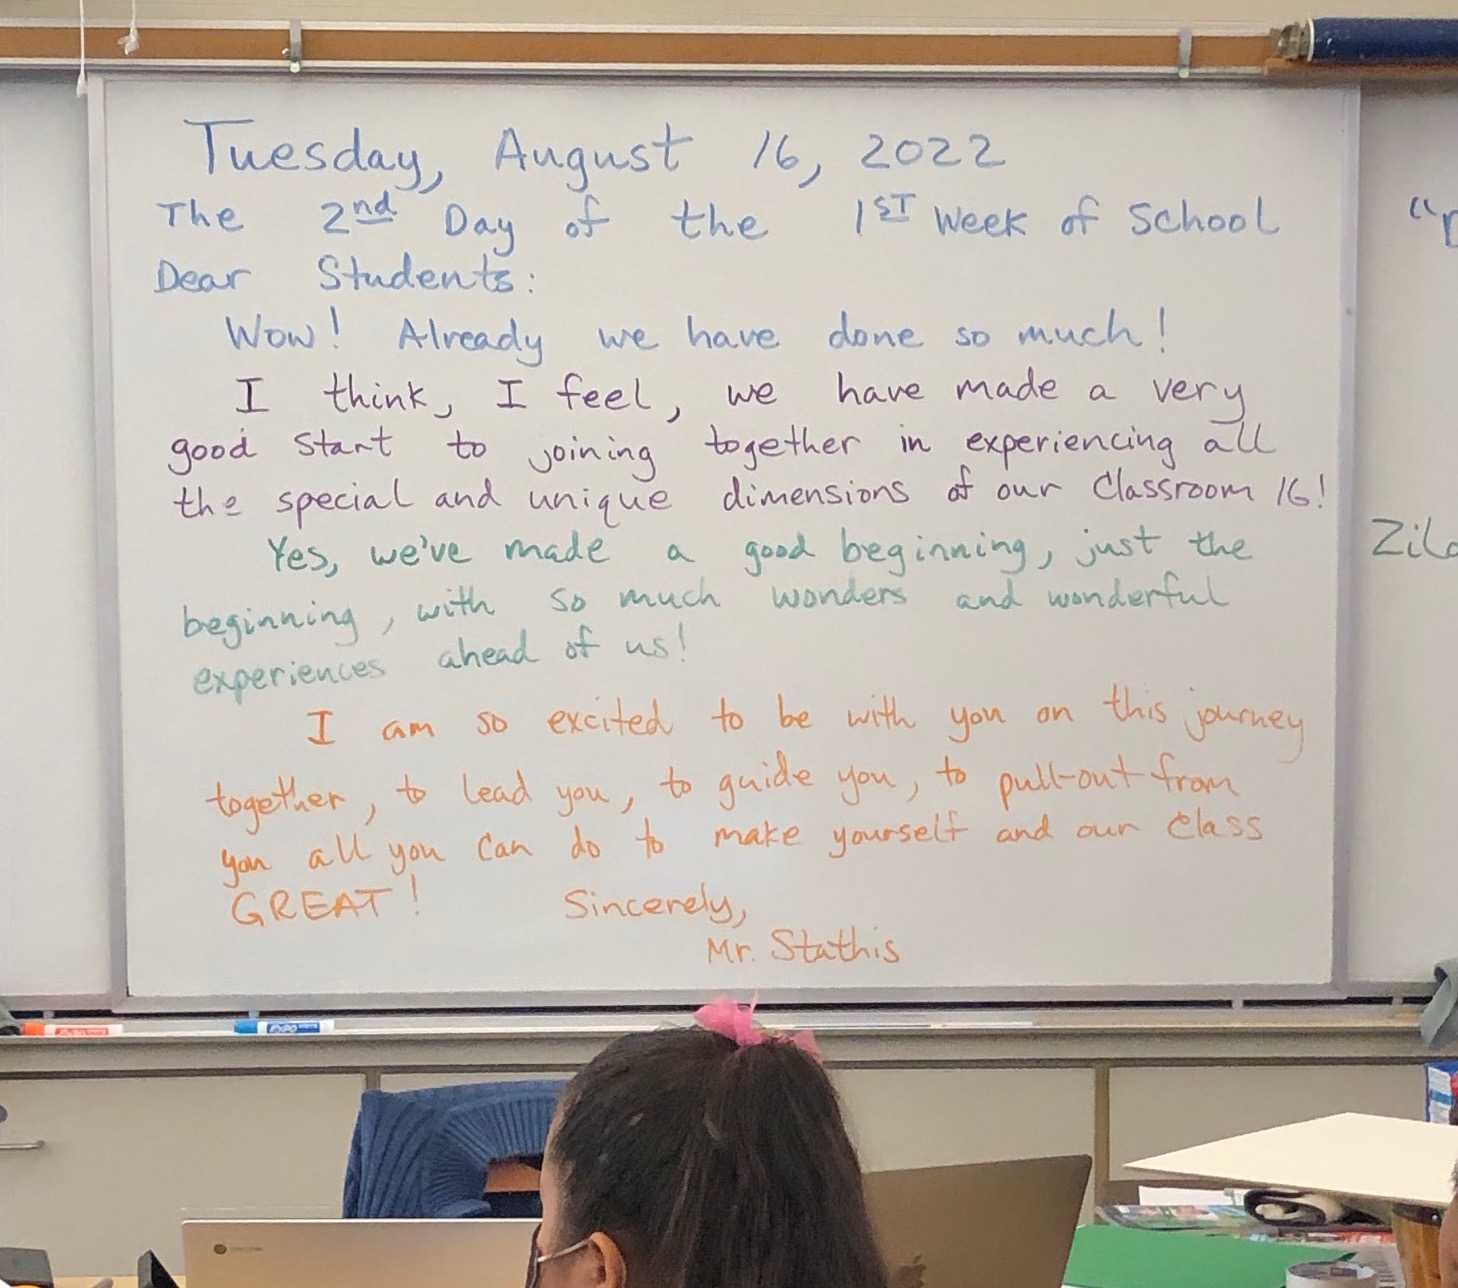 Tuesday, August 16, 2022
The 2nd Day of the 1ST Week of School
Dear Students:
Wow! Already we have done so much!
I think, I feel, we have made a very
good start to joining together in experiencing all
the special and unique dimensions of our Classroom 16!
Yes, we've made a good beginning, just the
beginning, with so much wonders and wonderful
experiences ahead of us!
I am so excited to be with you on this journey
together, to lead you, to guide you, to pull-out from
you all you can do to make yourself and our class
GREAT! Sincerely,
Mr. Stathis
EXPO